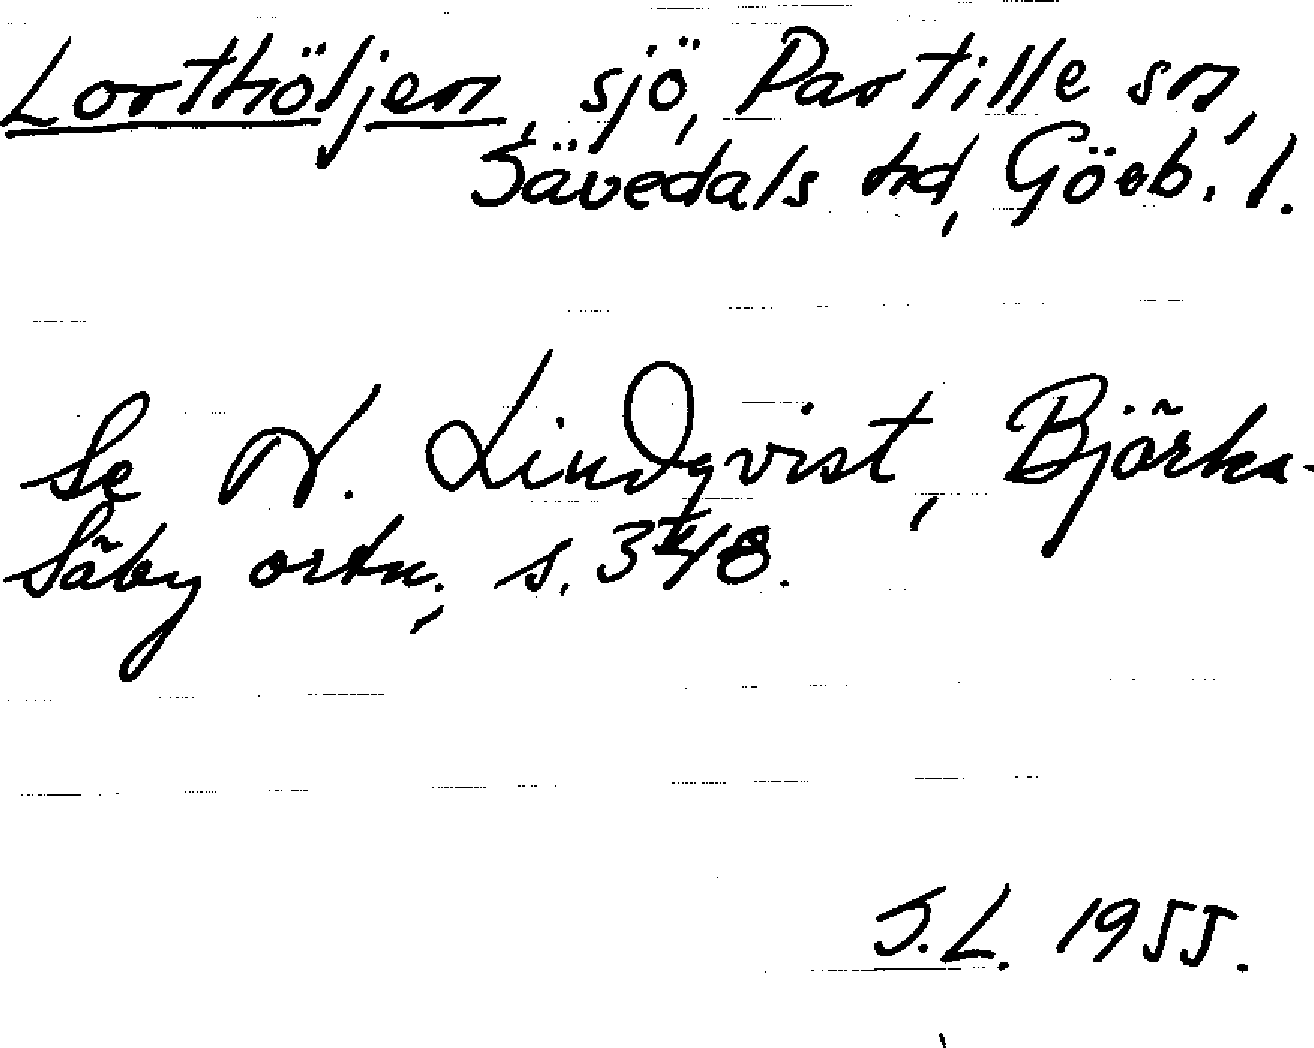 Lorthöljen, sjö, Partille sn,
Sävedals hd, Göteb. l.
Se N. Lindqvist, Björka-
Säby ortn., s. 348.
J.L. 1955.